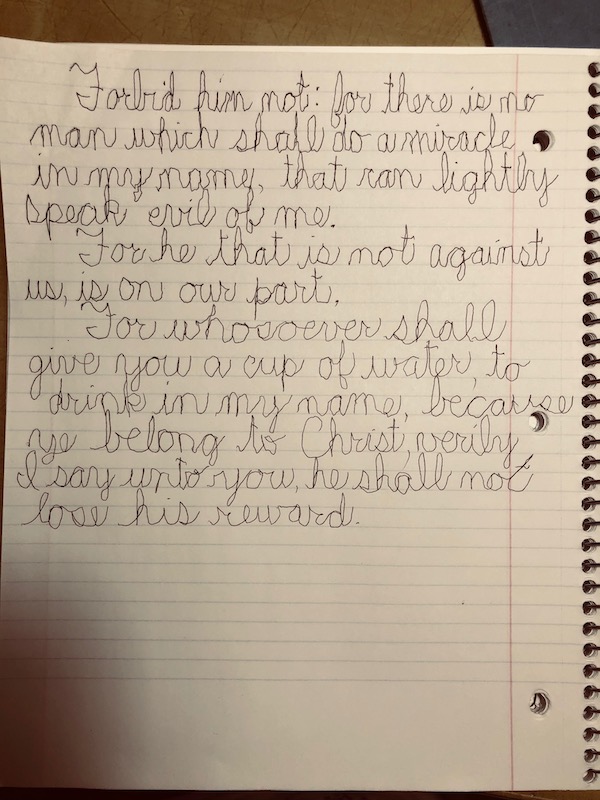 Forbid him not: for there is no
man which shall do a miracle
in my name, that can lightly
speak evil of me.
For he that is not against
us, is on our part.
For whosoever shall
give you a cup of water, to
drink in my name, because
ye belong to Christ, verily
I say unto you, he shall not
lose his reward.